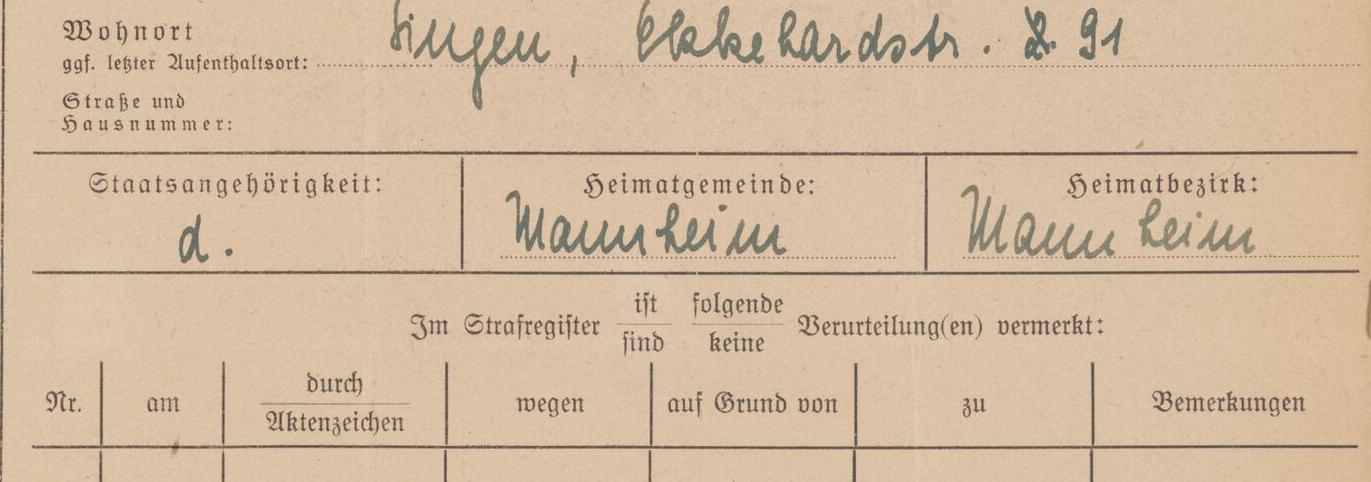 Wohnort
ggf. letzter Aufenthaltsort: Singen, Ekkehardstr. 91
Straße und
Hausnummer:
Staatsangehörigkeit: Heimatgemeinde: Heimatbezirk:
d. Mannheim Mannheim
Im Strafregister ist folgende Verurteilung(en) vermerkt:
sind keine
Nr. am durch wegen auf Grund von zu Bemerkungen
Aktenzeichen